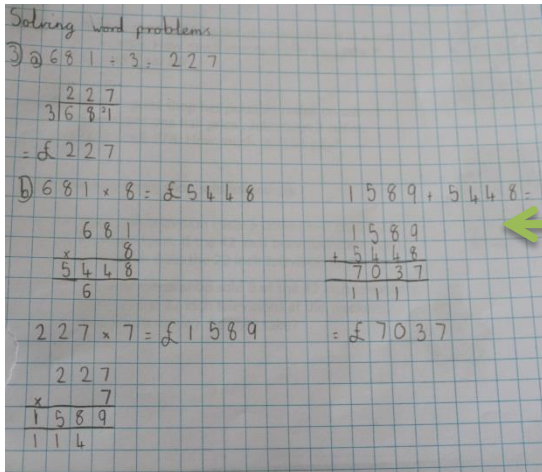 Solving word problems
3) a) 681 ÷ 3 = 227
227
3 6 8 ²1
= £227
b) 681 × 8 = £5448
681
× 8
5448
6
227 × 7 = £1589
227
× 7
1589
114
1589 + 5448 =
1589
+ 5448
7037
111
= £7037